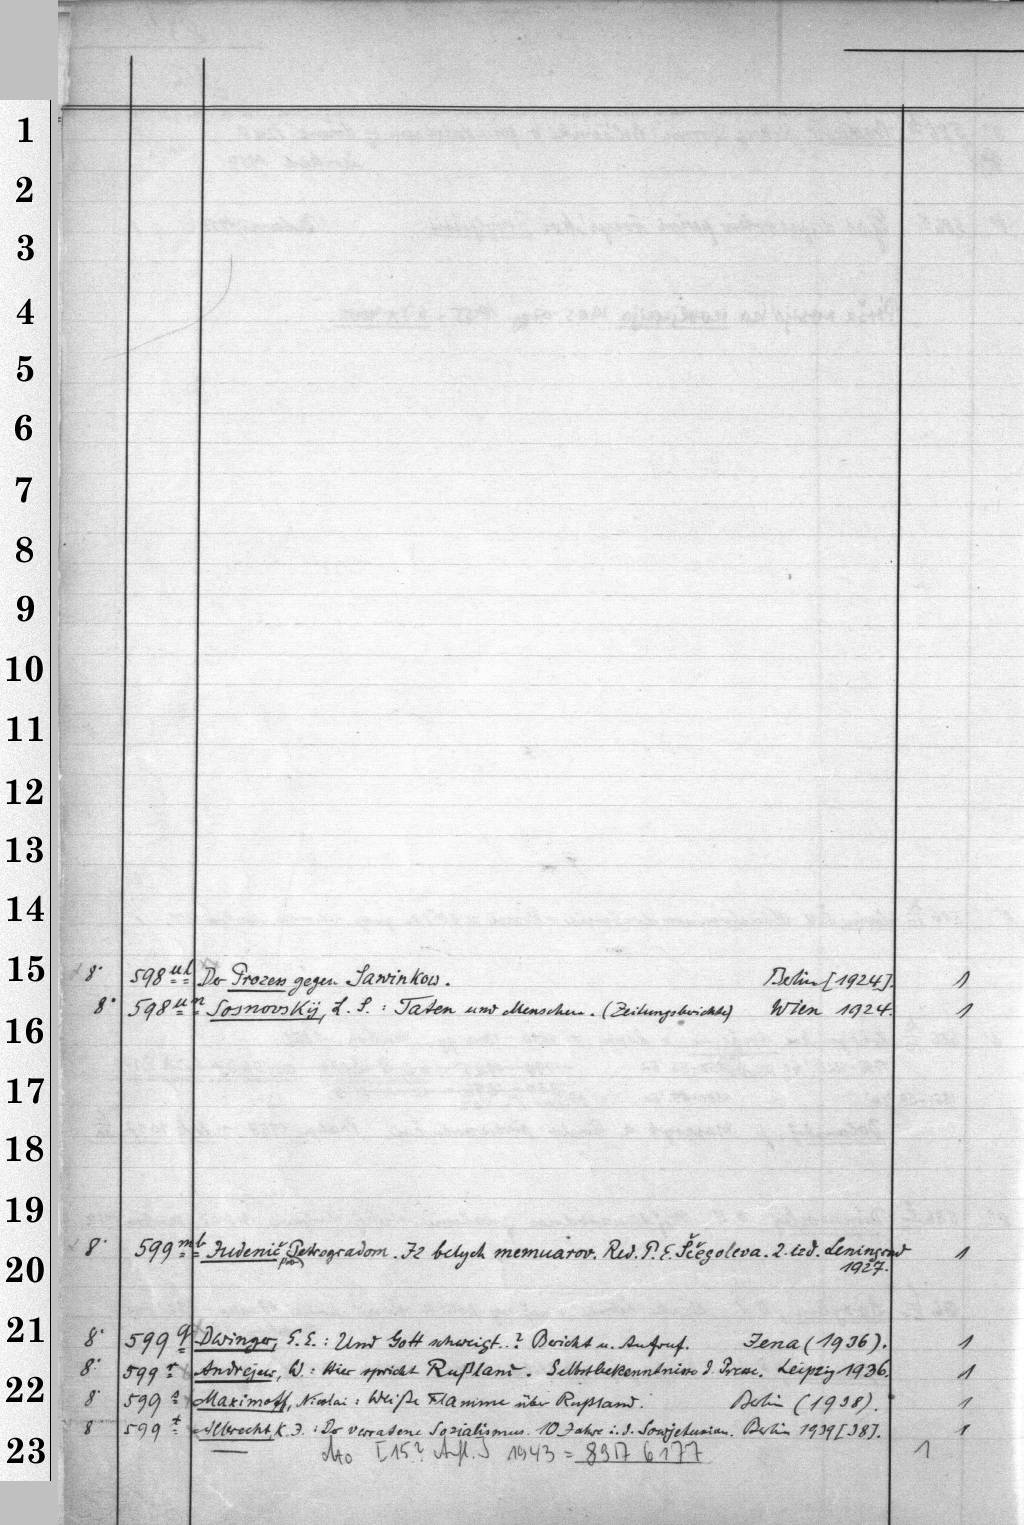 1
2
3
4
5
6
7
8
9
10
11
12
13
14
15
8° 598 ul Der Prozess gegen Sawinkow. Berlin [1924]. 1
8° 598 un Sosnovskij, L. S.: Taten und Menschen. (Zeitungsberichte) Wien 1924. 1
16
17
18
19
8° 599 mb Judenič pod Petrogradom. Iz belych memuarov. Red. P. E. Ščegoleva. 2. izd. Leningrad 1
1927.
20
21
8° 599 q Dwinger, E. E.: Und Gott schweigt..? Bericht u. Aufruf. Jena (1936). 1
8° 599 r Andrejew, W.: Hier spricht Rußland. Selbstbekenntnisse d. Presse. Leipzig 1936. 1
22
8° 599 s Maximoff, Nicolai: Weiße Flamme über Rußland. Berlin (1938). 1
8° 599 t Albrecht, K. I.: Der verratene Sozialismus. 10 Jahre i. d. Sowjetunion. Berlin 1939 [38]. 1
23
dto [15? Aufl.] 1943 = 8317 6177 1